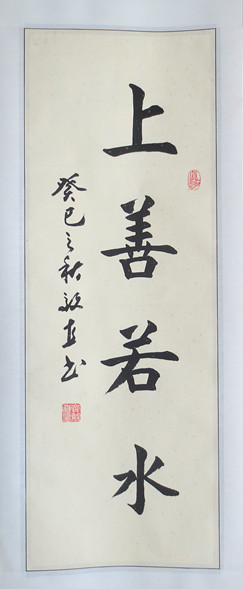 上善若水
癸巳之秋敬直书